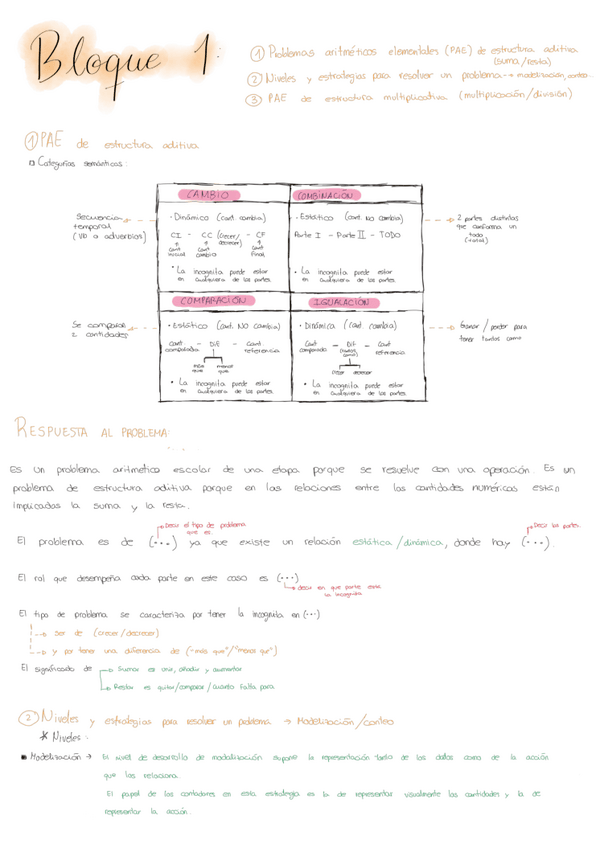 Bloque 1:
① Problemas aritméticos elementales (PAE) de estructura aditiva
(suma/resta)
② Niveles y estrategias para resolver un problema → modelización, conteo...
③ PAE de estructura multiplicativa (multiplicación/división)
① PAE de estructura aditiva
Categorías semánticas:
CAMBIO
· Dinámico (cant. cambia)
CI - CC (crecer/decrecer) - CF
cant. inicial
cant. cambio
cant. final
· La incognita puede estar
en cualquiera de las partes.
Secuencia
temporal
(VB o adverbios)
COMBINACIÓN
· Estático (cant. NO cambia)
Parte I - Parte II - TODO
· La incognita puede estar
en cualquiera de las partes.
2 partes distintas
que conforman un
todo
(total)
COMPARACIÓN
· Estático (cant. NO cambia)
cant. comparada - DIF - cant. referencia
más que
menos que
· La incognita puede estar
en cualquiera de las partes
Se comparan
2 cantidades
IGUALACIÓN
· Dinámica (cant. cambia)
Cant. comparada - DIF (tantos como) - Cant. referencia
crecer decrecer
· La incognita puede estar
en cualquiera de las partes
Ganar / perder para
tener tantos como
RESPUESTA AL PROBLEMA:
Es un problema aritmetico escolar de una etapa porque se resuelve con una operación. Es un
problema de estructura aditiva porque en las relaciones entre las cantidades numéricas están
implicadas la suma y la resta.
Decir el tipo de problema
que es.
Decir las partes.
El problema es de (...) ya que existe un relación estática/dinámica, donde hay (...).
El rol que desempeña cada parte en este caso es (...)
decir en que parte está
la incognita
El tipo de problema se caracteriza por tener la incognita en (...)
ser de (crecer/decrecer)
y por tener una diferencia de ("más que"/"menos que")
El significado de
Sumar es unir, añadir y aumentar
Restar es quitar/comparar/cuanto falta para
② Niveles y estrategias para resolver un problema → Modelización/conteo
* Niveles:
Modelización → El nivel de desarrollo de modalización supone la representación tanto de los datos como de la acción
que las relaciona.
El papel de los contadores en esta estrategia es la de representar visualmente las cantidades y la de
representar la acción.